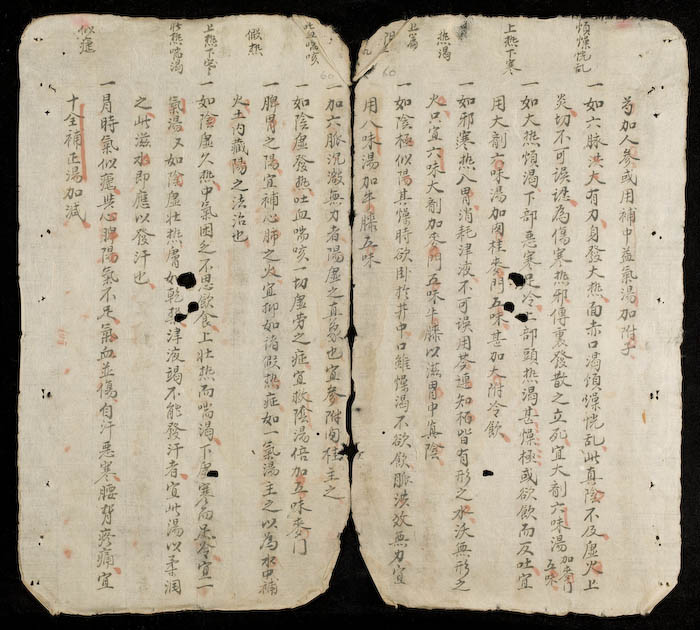 煩燥慌乱
上热下寒
热渴
上焉
為加人参或用補中益氣湯加附子
一如六脉洪大有力身發大热面赤口渴煩燥慌乱此真陰不及虚火上
炎切不可误認為傷寒热邪傳裏發散之立死宜大劑六味湯加麥門五味
一如大热煩渴下部惡寒足冷上部頭热渴甚燥極或欲飲而反吐宜
用大劑六味湯加肉桂麥門五味甚加大附冷飲
一如邪寒热入胃消耗津液不可误用芩連知栢皆有形之水沃無形之
火只宜六味大劑加麥門五味牛膝以滋胃中真陰
一如陰極似陽其燥時欲卧扵井中口雖燥渴不欲飲脉洪效無力宜
用八味湯加牛膝五味
吐血喘咳
假热
上热下寒
壮热喘渴
似瘧
一加六脉沉微無力者陽虚之真象也宜参附肉桂主之
一如陰虚發热吐血喘咳一切虚劳之症宜救陰湯倍加五味麥門
一脾胃之陽宜補心肺之火宜抑如诸假热症如一氣湯主之以為水中補
火土内藏陽之法治也
一如陰虚久热中氣困乏不思飲食上壮热而喘渴下虚寒而足冷宜一
氣湯又如陰虚壮热膚如乾热津液竭不能發汗者宜此湯以柔润
之此滋水即應以發汗也
一月時氣似瘧共心脾陽氣不足氣血並傷自汗惡寒腰背疼痛宜
十全補正湯加减